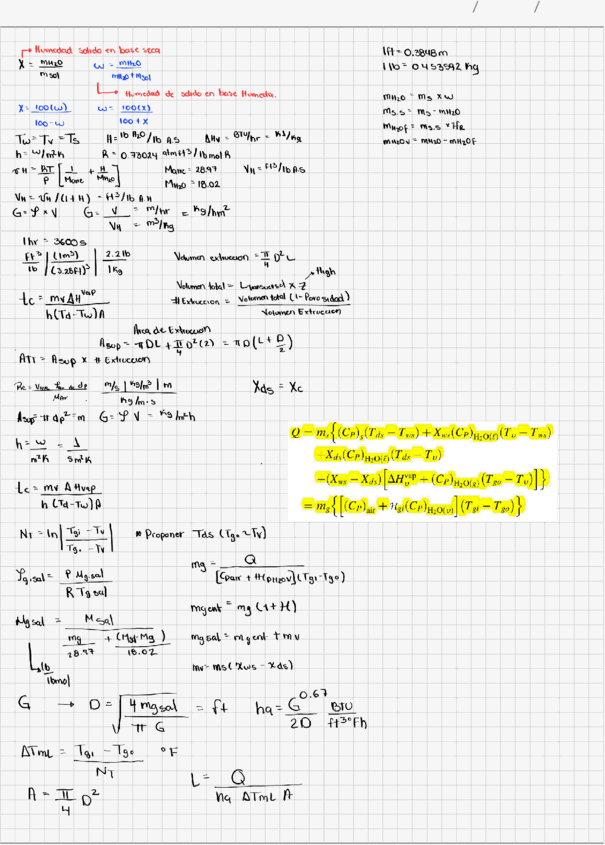 Humedad solido en base seca
X = mH2O / msol    ω = mH2O / mH2O + msol
Humedad de solido en base Humeda.
X = 100(ω) / 100 - ω    ω = 100(x) / 100 + x
1ft = 0.3848m
1 lb = 0.453592 Kg
mH2O = ms x ω
ms.s = ms - mH2O
mH2OF = ms.s x
mH2OV = mH2O - mH2OF
Tw = Tv = Ts    H = lb H2O / lb A.S    ΔHv = BTU/hr = KJ/Kg
h = w/m²K    R = 0.73024 atm ft³ / lbmol R
VH = RT/P [ 1/Maire + H/MH2O ]    Maire = 28.97    VH = Ft³/lb A.S
MH2O = 18.02
VH = VH / (1+H) = ft³ / lb A H
G = ρ x V    G = V / VH = m/hr / m³/Kg = Kg/hm²
1hr = 3600s
ft³/lb | (1m³) / (3.28ft)³ | 2.2lb / 1Kg    Volumen extruccion = π/4 D² L
High
Volumen total = L x z
tc = mv ΔH vap / h (Td - Tw) A    # Extruccion = Volumen total (1 - Porosidad) / Volumen Extruccion
Area de Extruccion
Asup = π DL + π/4 D² (2) = π D (L + D/2)
ATT = Asup x # Extruccion
Re =    m/s | Kg/m³ | m / Kg/m·s    Xds = Xc
Asup = π dp² = m    G = ρ V = Kg/m²h
h = w / m²K = J / sm²K
Q = ms{(CP)s(Tds − Tws) + Xws(CP)H2O(ℓ)(Tv − Tws)
+Xds(CP)H2O(ℓ)(Tds − Tv)
−(Xws − Xds)[ΔHv^vap + (CP)H2O(g)(Tgo − Tv)]}
= mg{[(CP)air + Hgi(CP)H2O(v)](Tgi − Tgo)}
tc = mv ΔHvap / h (Td - Tw) A
NT = ln | Tgi - Tv / Tgo - Tv |    * Proponer Tds (Tgo > Tv)
mg = Q / [Cpair + H(pH2OV)] (Tgi - Tgo)
ρg.sal = P Mg.sal / R Tg sal
mgent = mg (1 + H)
Mgsal = Msal / mg/28.97 + (Mgi·Mg)/18.02    mgsal = mgent + mv
lb / lbmol    mv = ms (Xws - Xds)
G → D = √ 4 mgsal / π G = ft    ha = G^0.67 / 2D BTU / ft³°Fh
ΔTmL = Tgi - Tgo / NT °F
A = π/4 D²    L = Q / ha ΔTmL A